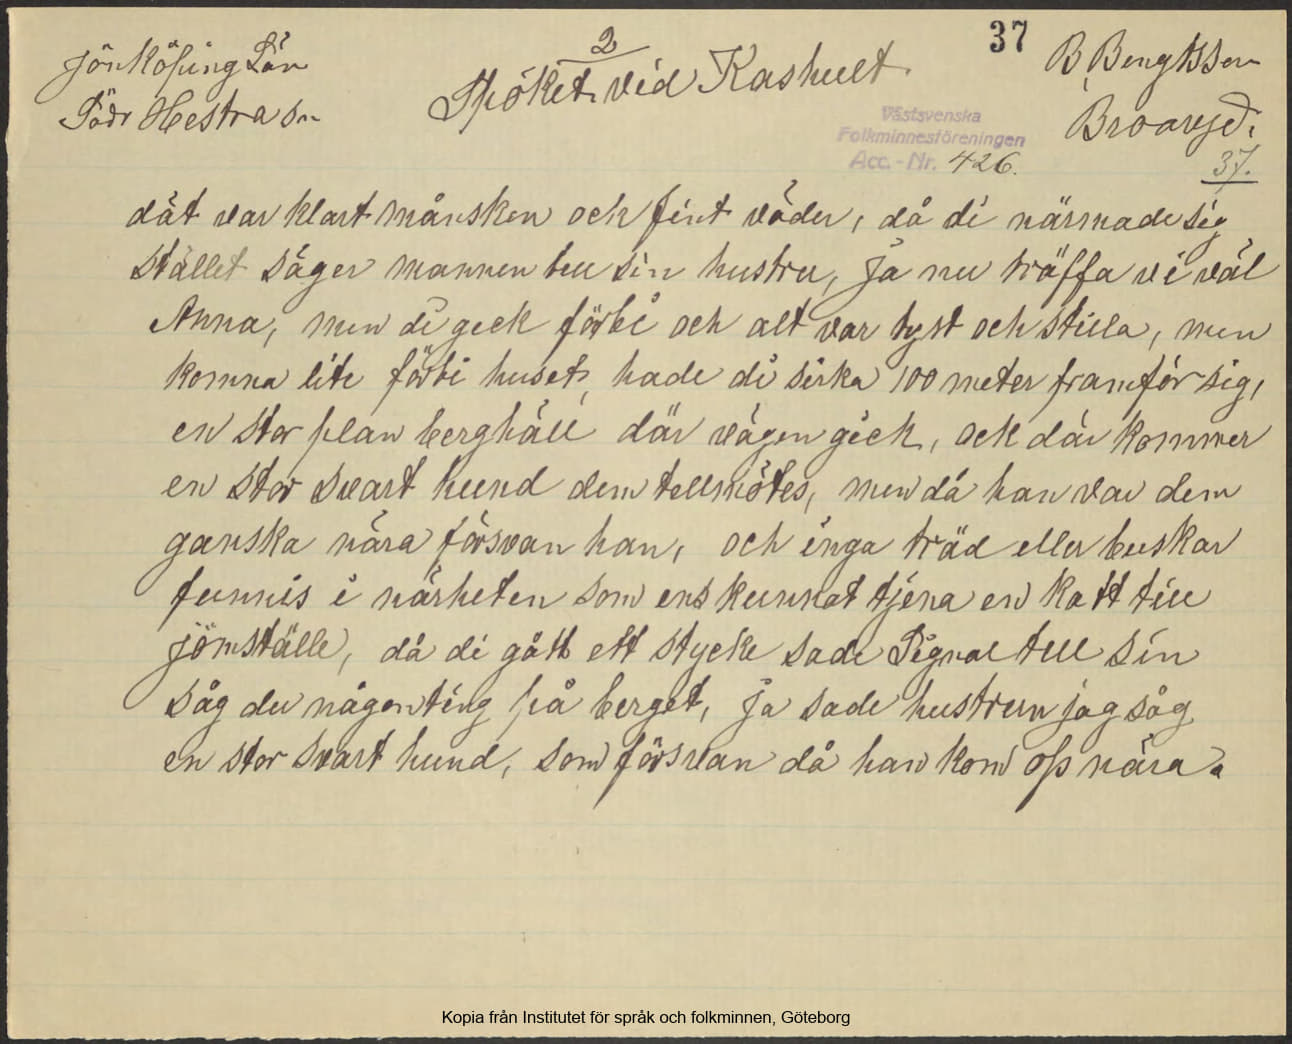 Jönköping Län
Södr Hestra Sn
2
Spöket vid Kashult
37
B Bengtsson
Broaryd.
Västsvenska
Folkminnesföreningen
Acc.-Nr. 426.
37.
dät var klart månsken och fint väder, då di närmade sig
stället säger mannen till sin hustru, ja nu träffa vi väl
Anna, men di geck förbi och alt var tyst och stilla, men
komna lite förbi huset, hade di sirka 100 meter framför sig,
en stor plan berghäll där vägen gick, ock där kommer
en stor svart hund dem tellmötes, men då han var dem
ganska nära försvan han, och inga träd eller buskar
funnis i närheten som ens kunnat tjena en katt till
jömställe, då di gått ett stycke sade Signal till sin
såg du någonting på berget, ja sade hustrun jag såg
en stor svart hund, som försvan då han kom oss nära.
Kopia från Institutet för språk och folkminnen, Göteborg